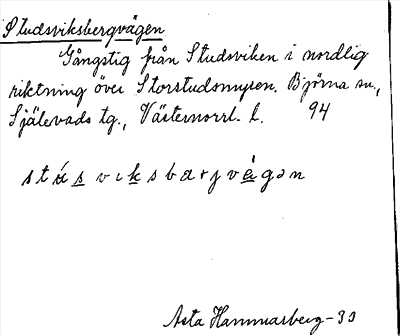 Studsviksbergvägen
Gångstig från Studsviken i nordlig
riktning över Storstudsmyren. Björna sn.,
Själevads tg., Västernorrl. l. 94
stúsviksbarjvègən
Asta Hammarberg-33